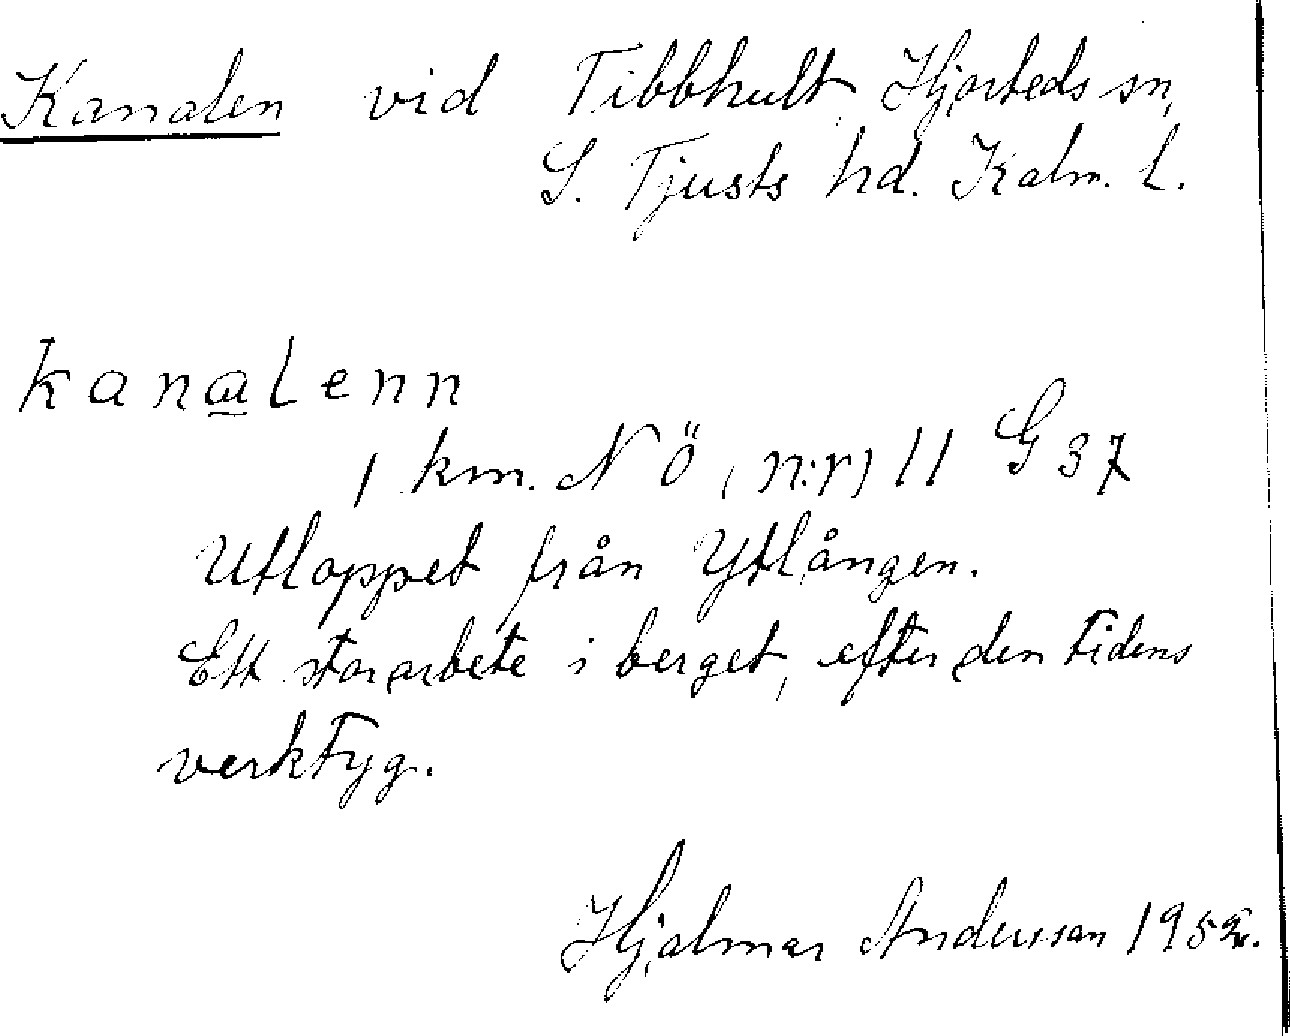 Kanalen vid Tibbhult, Hjorteds sn,
S. Tjusts hd. Kalm. L.
kanalenn
1 km. NÖ, (n:r) 11 G 37
Utloppet från Ytlången.
Ett stor arbete i berget, efter den tidens
verktyg.
Hjalmar Andersson 1952.